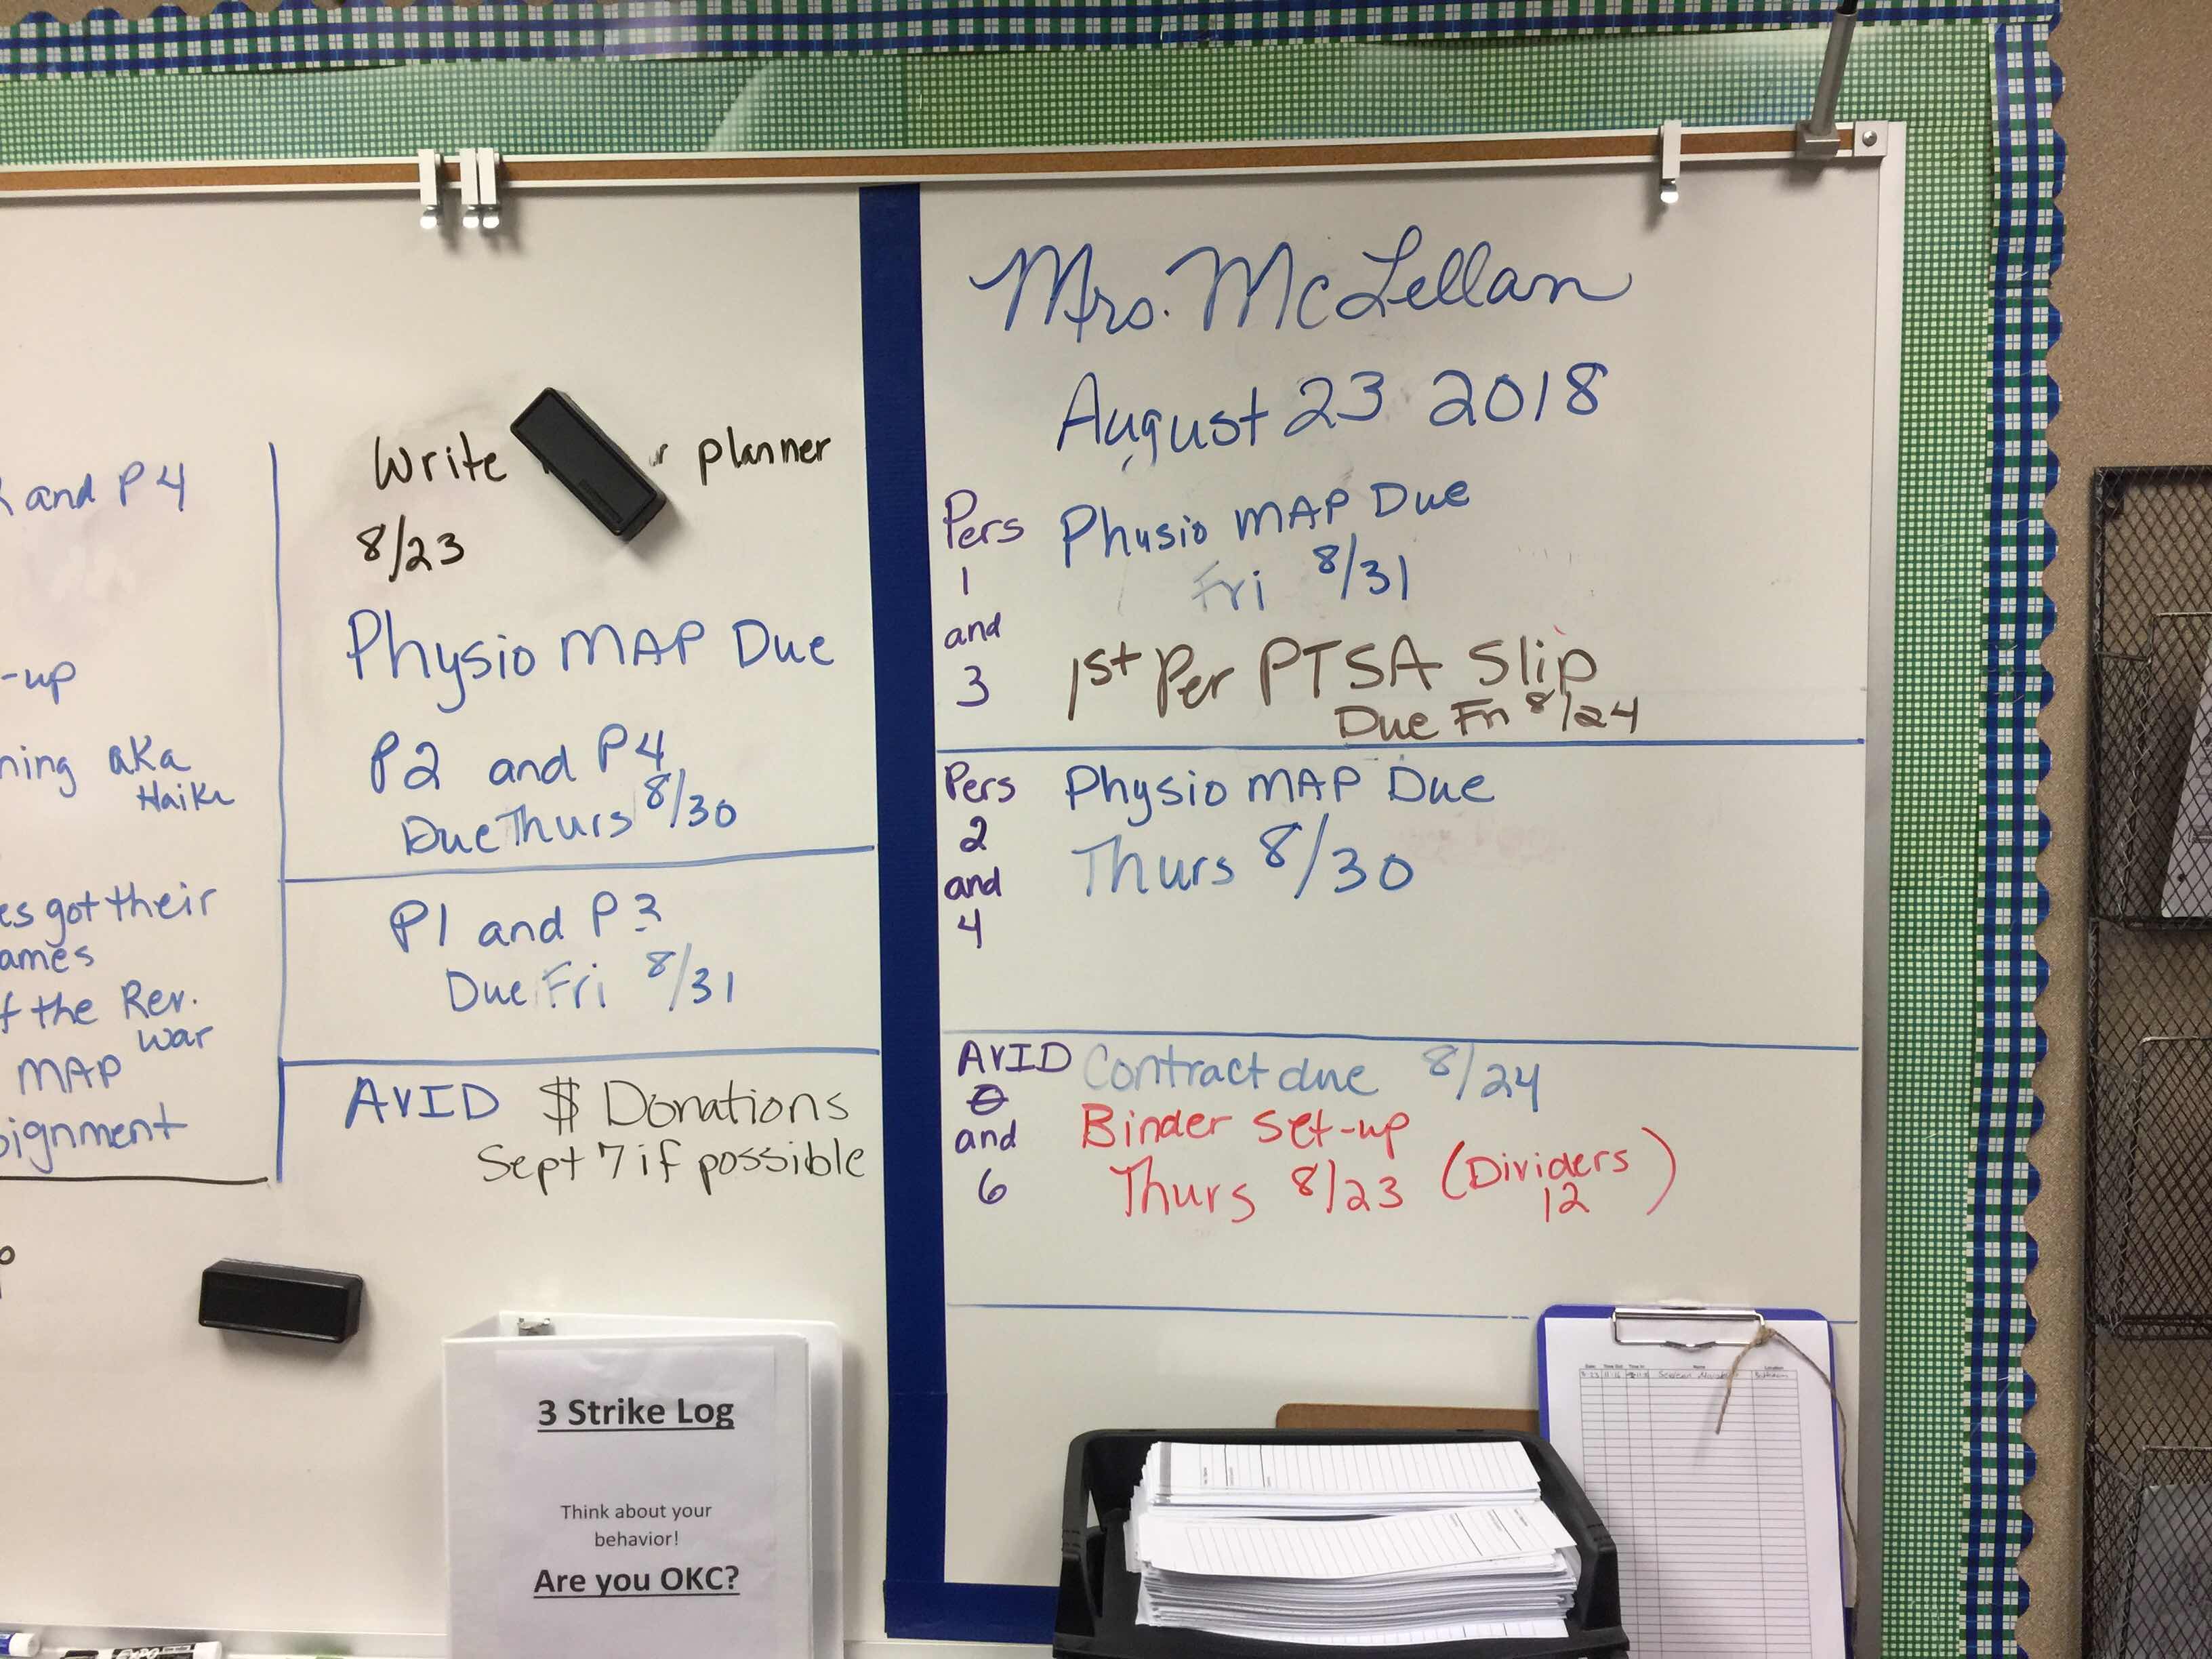 and P4
-up
ning aka
Haiku
es got their
ames
f the Rev.
War
MAP
signment
Write planner
8/23
Physio MAP Due
P2 and P4
Due Thurs 8/30
P1 and P3
Due Fri 8/31
AVID $ Donations
Sept 7 if possible
3 Strike Log
Think about your
behavior!
Are you OKC?
EXPO
Mrs. McLellan
August 23 2018
Pers
1
and
3
Physio MAP Due
Fri 8/31
1st Per PTSA Slip
Due Fri 8/24
Pers
2
and
4
Physio MAP Due
Thurs 8/30
AVID
0
and
6
Contract due 8/24
Binder set-up
Thurs 8/23 (Dividers
12)
Date Time Out Time In Name Location